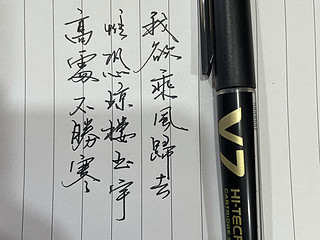 我欲乘風歸去
惟恐琼樓玉宇
高處不勝寒
V7
HI-TEC
CARTRIDGE